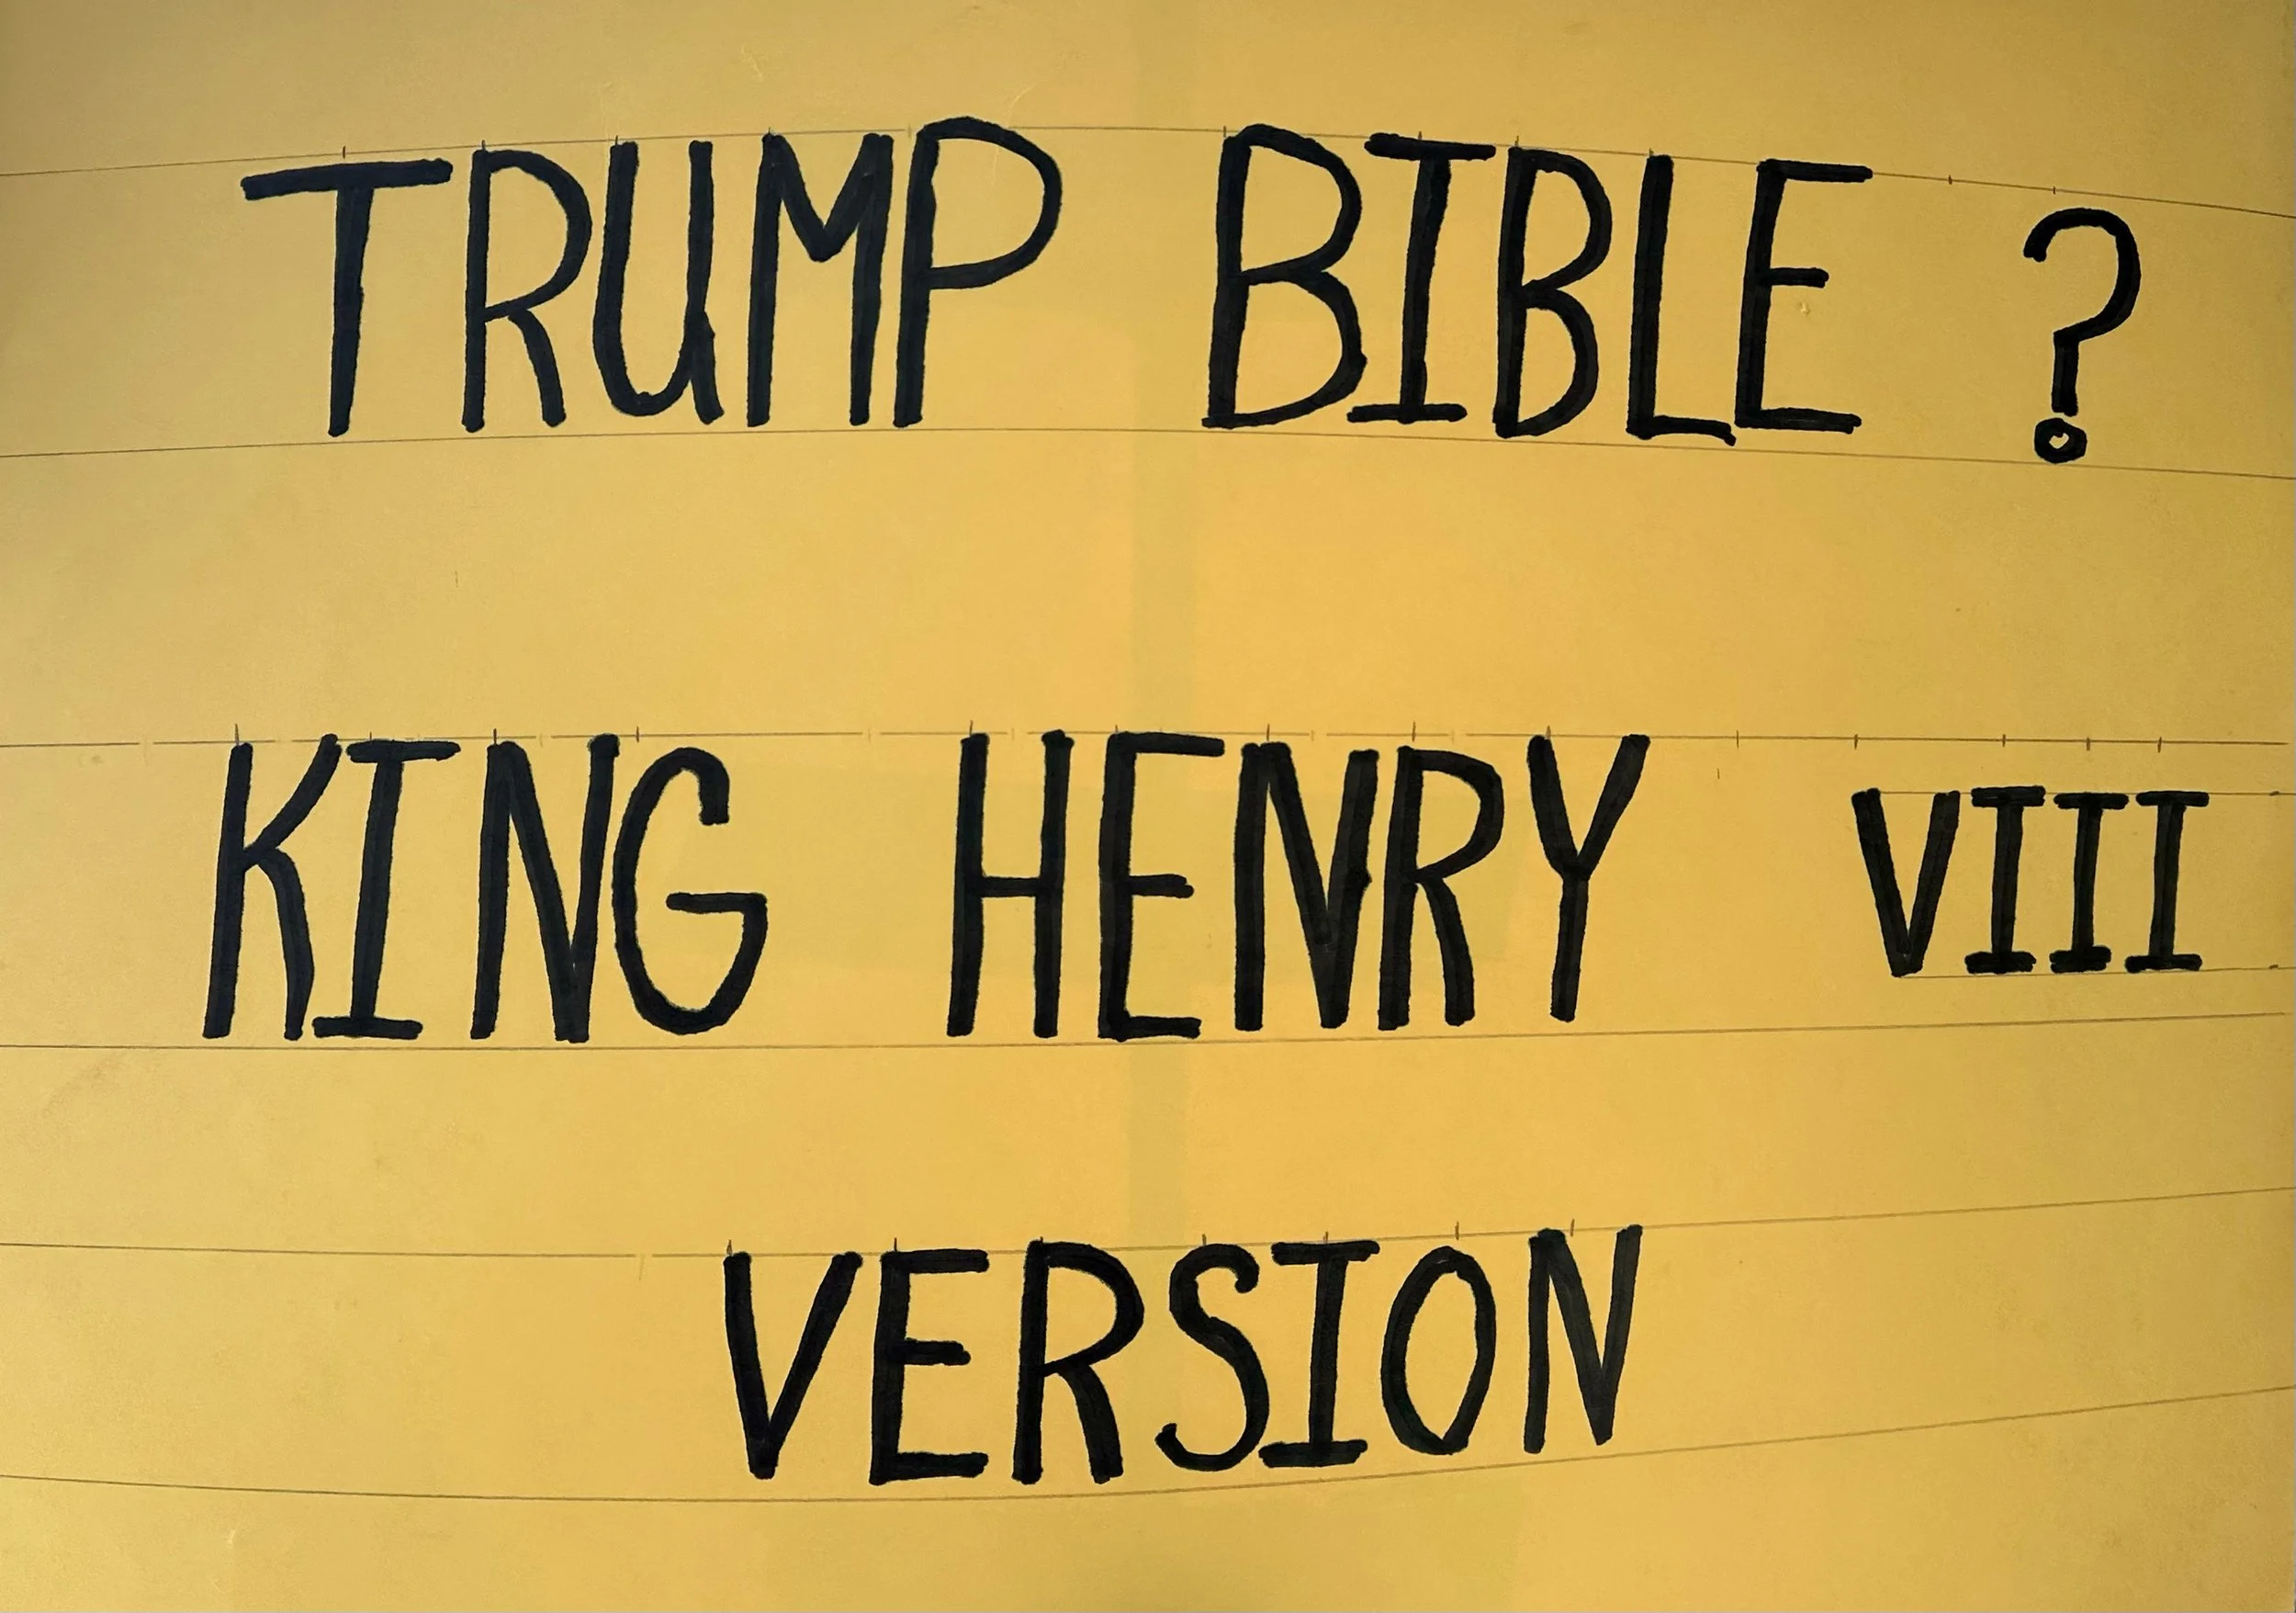 TRUMP BIBLE ?
KING HENRY VIII
VERSION